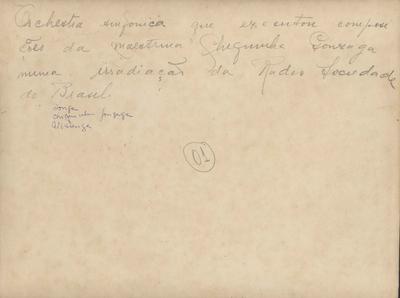 Orchestra sinfonica que executou composi
ções da maestrina Chiquinha Gonzaga
numa irradiação da Radio Sociedade
do Brasil
chiquinha gonzaga
01